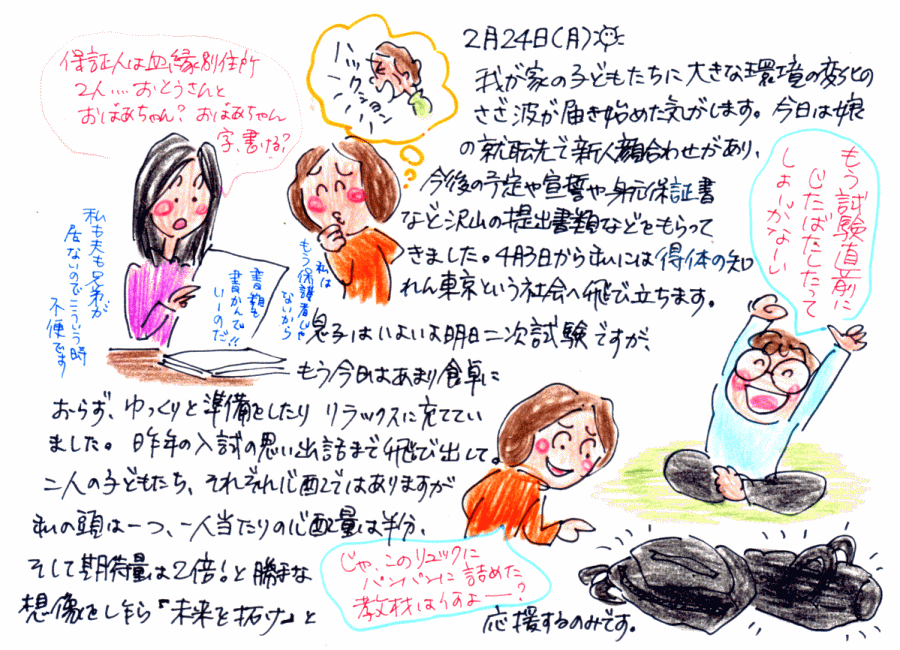 2月24日(月)
我が家の子どもたちに大きな環境の変化の
さざ波が届き始めた気がします。今日は嬢
の就転先で新人顔合わせがあり、
今後の予定や宣誓や身元保証書
など沢山の提出書類などをもらって
きました。4月3日からムいには得体の知
れん東京という社会へ飛び立ちます。
息子はいよいよ明日二次試験ですが、
もう今日はあまり食卓に
おらず、ゆっくりと準備をしたりリラックスに充ててい
ました。昨年の入試の思い出話まで飛び出して。
二人の子どもたち、それぞれ心配ではありますが
私の頭は一つ、一人当たりの心配量は半分、
そして期待量は2倍!と勝手な
想像をしながら『未来を拓け』と
応援するのみです。
保証人は血縁別住所
2人....おとうさんと
おばあちゃん?おばあちゃん
字、書ける?
ハックション
私は
もう保護者じゃ
ないから
書類も
書かんで
いーのだ!!
私も夫も兄弟が
居ないのでこういう時
不便です
もう試験直前に
じたばたしたって
しょーがなーい
じゃ、このリュックに
パンパンに詰めた
教材は何よー?